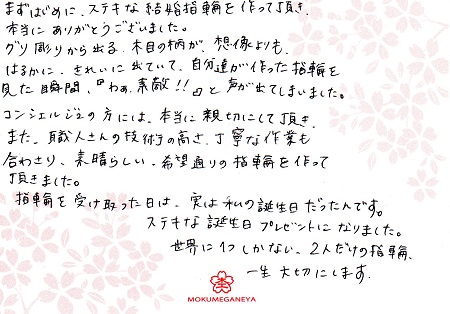 まずはじめに、ステキな結婚指輪を作って頂き、
本当にありがとうございました。
グリ彫りから出る、木目の柄が、想像よりも、
はるかに、きれいに出ていて、自分達が作った指輪を
見た瞬間、『わぁ、素敵!!』と声が出てしまいました。
コンシェルジュの方には、本当に親切にして頂き、
また、職人さんの技術の高さ、丁寧な作業も
合わさり、素晴らしい、希望通りの指輪を作って
頂きました。
指輪を受け取った日は、実は私の誕生日だったんです。
ステキな誕生日プレゼントになりました。
世界に1つしかない、2人だけの指輪、
一生大切にします。
MOKUMEGANEYA